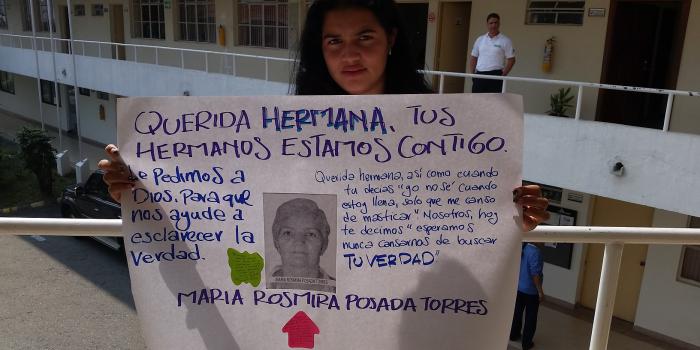 QUERIDA HERMANA, TUS
HERMANOS ESTAMOS CONTIGO.
Le Pedimos a
DIOS. Para que
nos ayude a
esclarecer la
Verdad.
Querida hermana, así como cuando
tu decias "yo no sé cuando
estoy llena, solo que me canso
de masticar" Nosotros, hoy
te decimos "esperamos
nunca cansarnos de buscar
TU VERDAD"
MARIA ROSMIRA POSADA TORRES
MARIA ROSMIRA POSADA TORRES